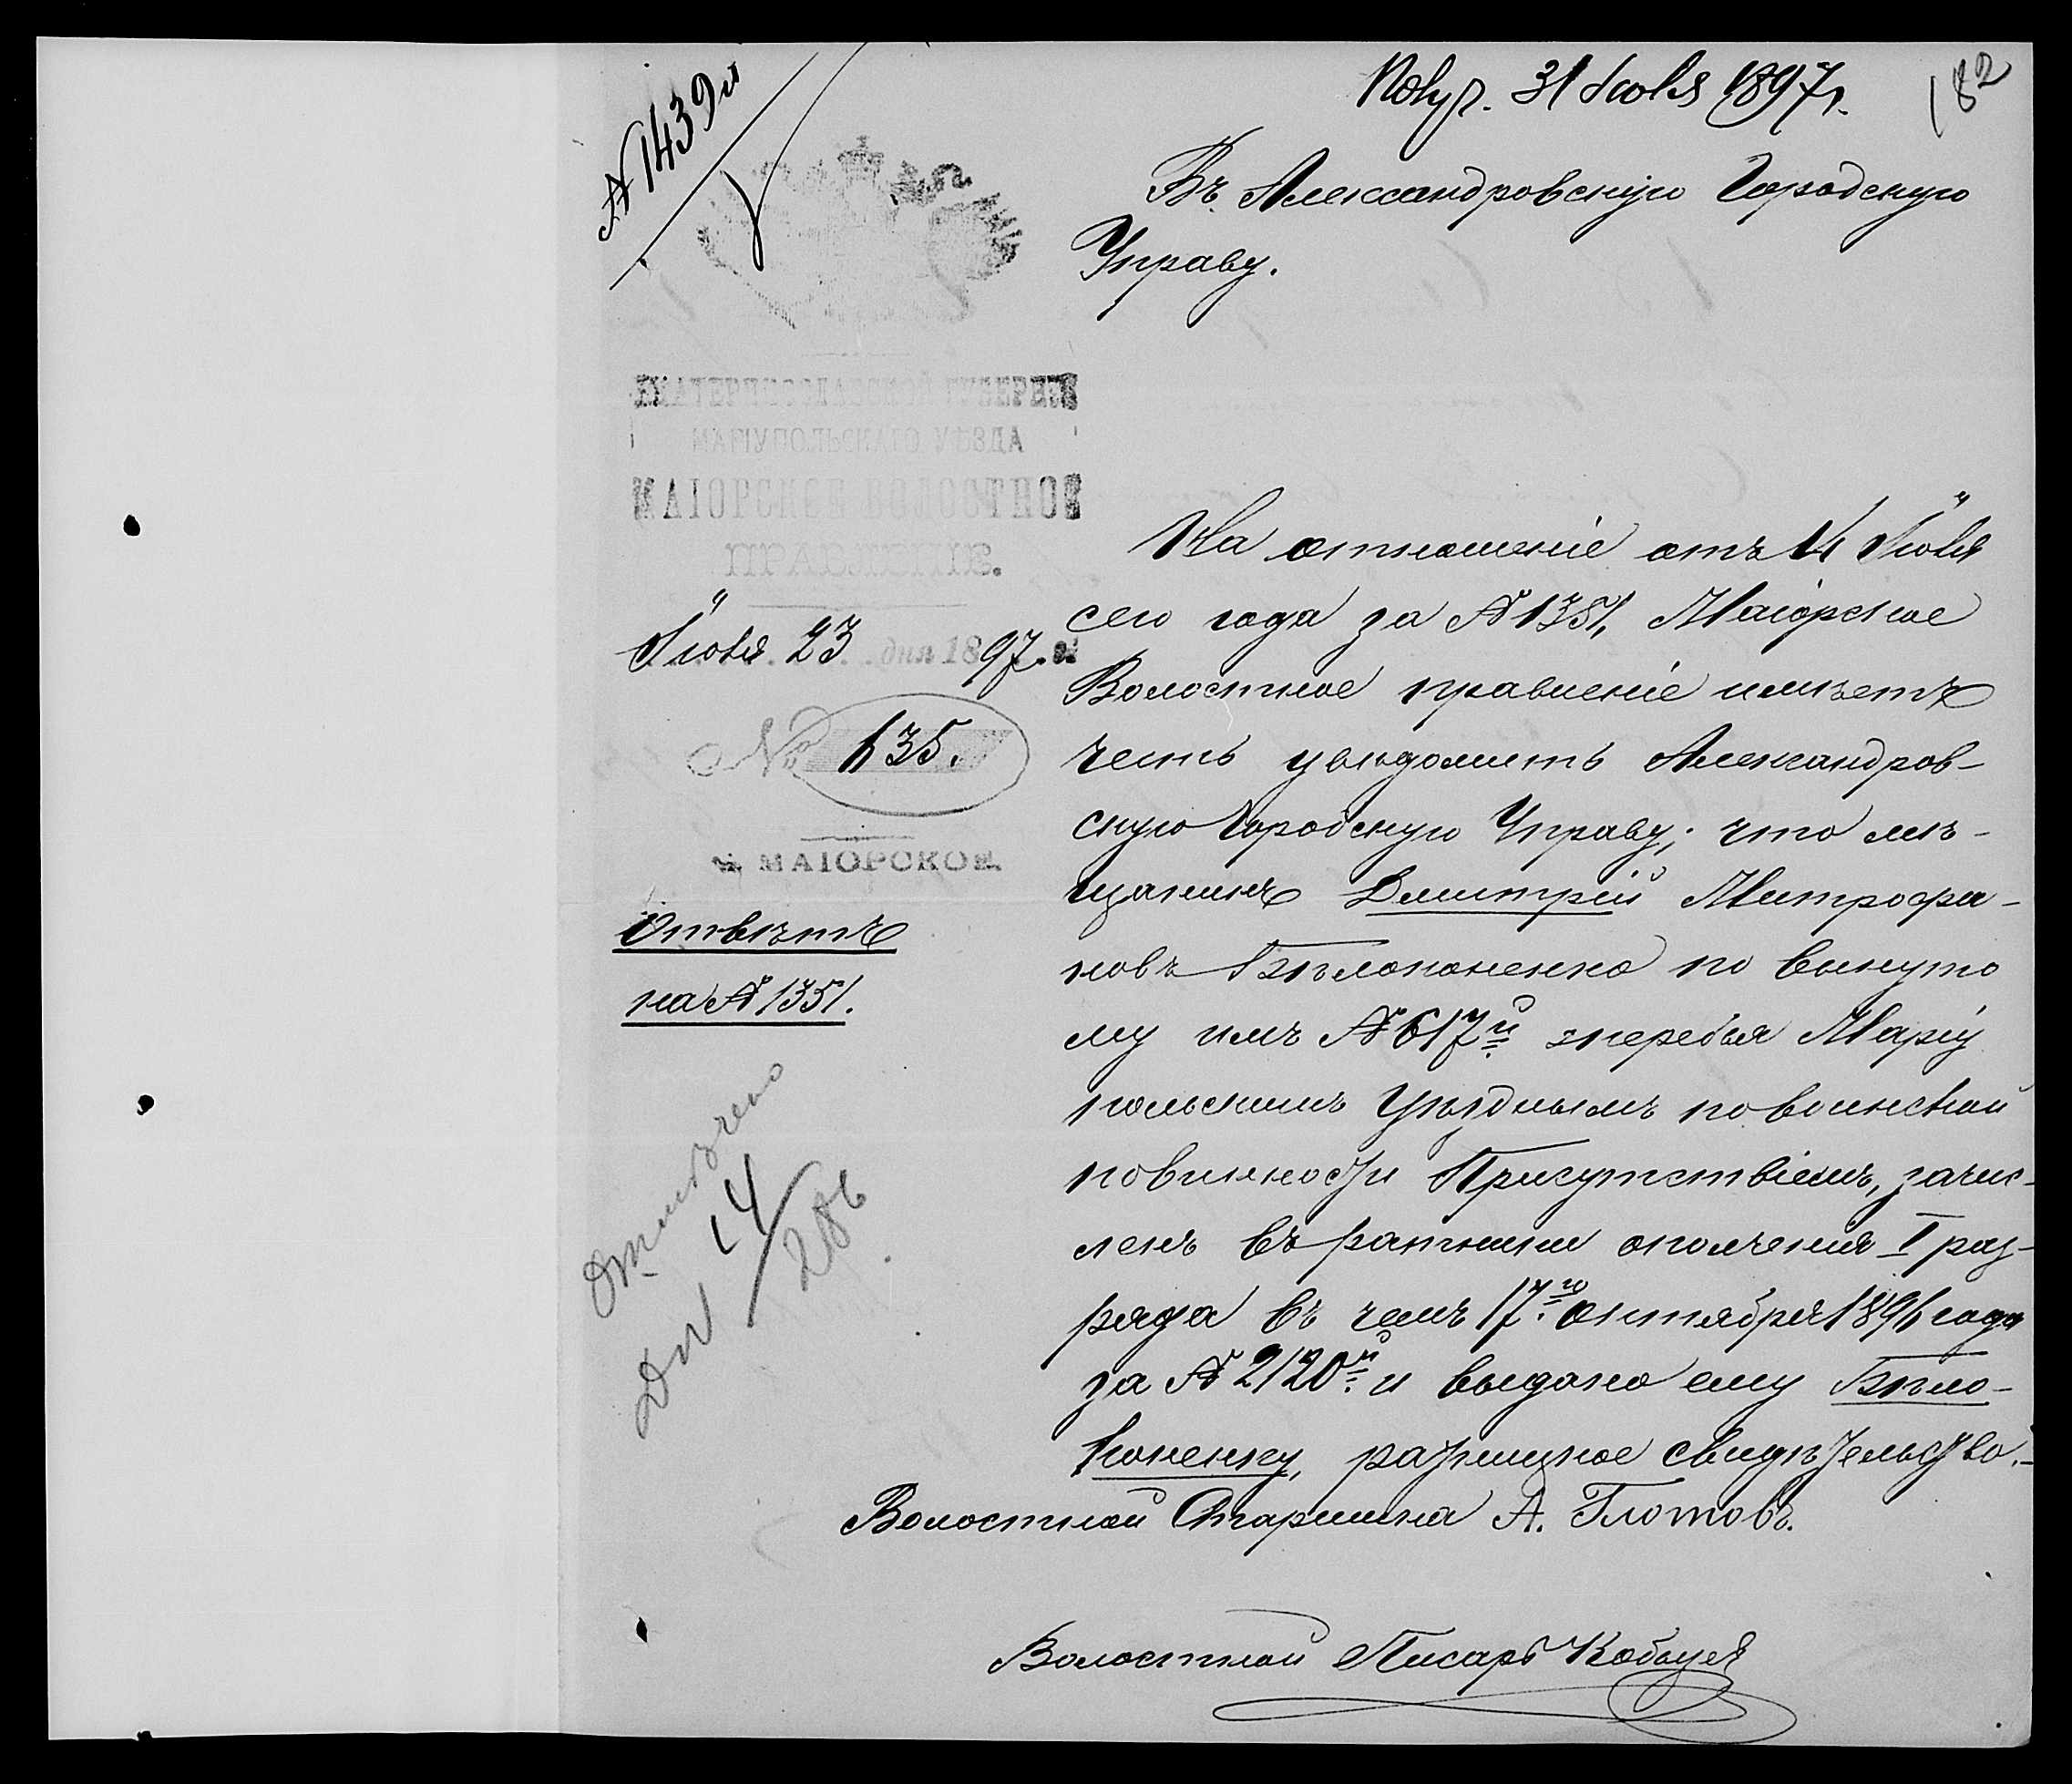 № 1439й
Получ. 31 Июля 1897 г.
182
Въ Александровскую Городскую
Управу.
ЕКАТЕРИНОСЛАВСКОЙ ГУБЕРНІИ
МАРІУПОЛЬСКАГО УѢЗДА
МАІОРСКОЕ ВОЛОСТНОЕ
ПРАВЛЕНІЕ.
Іюля 23 дня 1897 г.
№ 635.
МАІОРСКОЕ.
Отвѣтъ
на № 1351.
Отмѣчено
14/286
На отношеніе отъ 14 Іюля
сего года за № 1351, Маіорское
Волостное правленіе имѣетъ
честь увѣдомить Александров-
скую Городскую Управу, что мѣ-
щанинъ Дмитрій Митрофа-
новъ Бѣлоконенко по вынуто
му имъ № 617й жеребья Маріу
польскимъ Уѣзднымъ по воинской
повинности Присутствіемъ, зачис-
ленъ въ ратники ополченія I раз-
ряда въ чемъ 17го октября 1896 года
за № 2120й и выдано ему Бѣло-
коненку, ратницкое свидѣтельство.-
Волостной Старшина А. Глотовъ.
Волостной Писарь